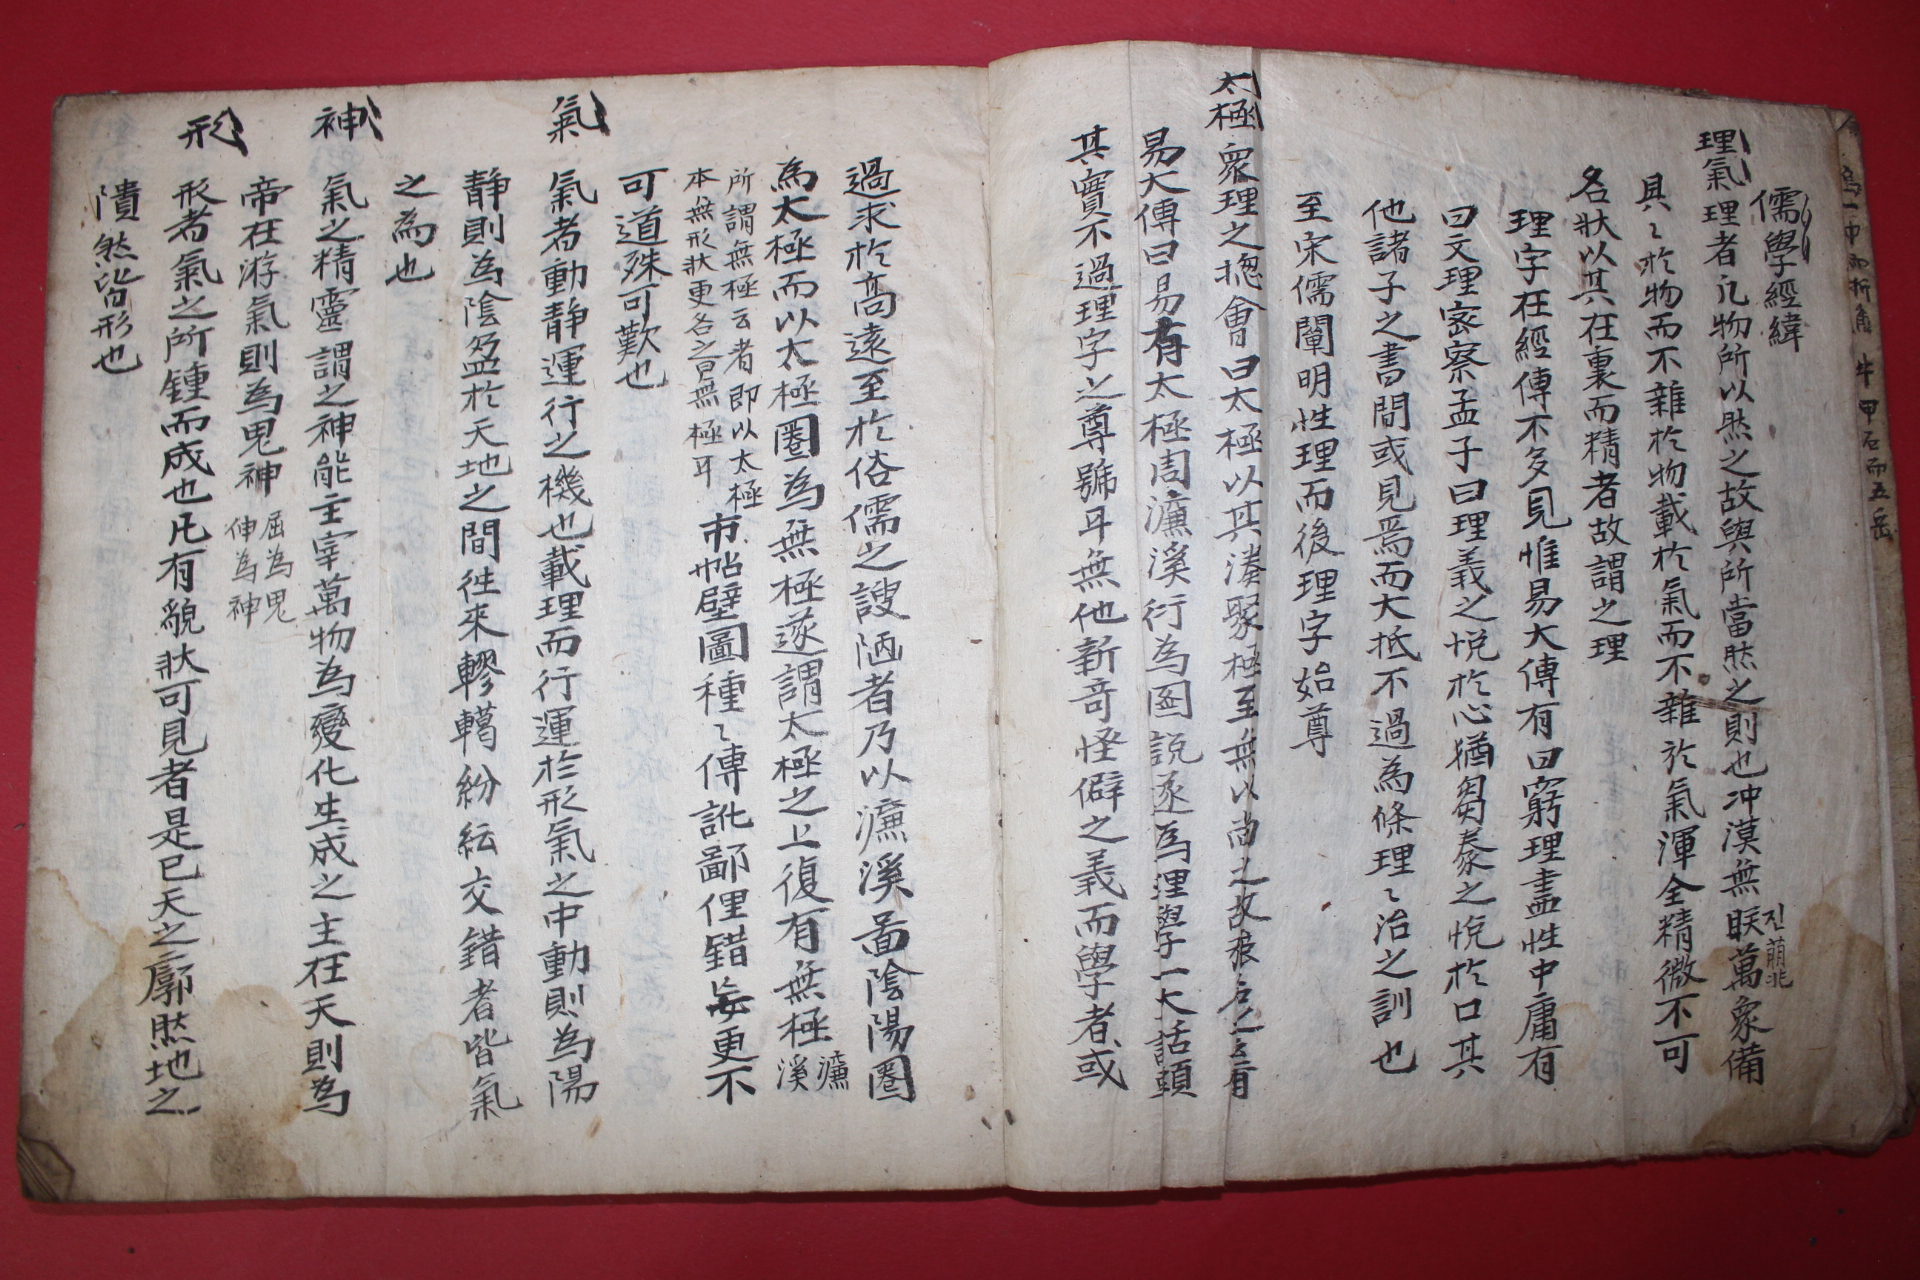 儒學經緯
理氣 理者凡物所以然之故與所當然之則也冲漠無眹진萬象備
具〻於物而不雜於物載於氣而不雜於氣渾全精微不可
各狀以其在裏而精者故謂之理
理字在經傳不多見惟易大傳有曰窮理盡性中庸有
曰文理密察孟子曰理義之悅於心猶芻豢之悅於口其
他諸子之書間或見焉而大抵不過為條理〻治之訓也
至宋儒闡明性理而後理字始尊
太極 衆理之揔會曰太極以其湊聚極至無以尚之故
易大傳曰易有太極周濂溪衍為圖說遂為理學一大話頭
其實不過理字之尊號耳無他新奇怪僻之義而學者或
過求於高遠至於俗儒之謏陋者乃以濂溪啚陰陽圈
為太極而以太極圈為無極遂謂太極之上復有無極濂溪
所謂無極云者即以太極
本無形狀更名之曰無極耳
市帖壁圖種〻傳訛鄙俚錯
更不
可道殊可歎也
氣 氣者動静運行之機也載理而行運於形氣之中動則為陽
静則為陰盈於天地之間徃來轇轕紛紜交錯者皆氣
之為也
神 氣之精靈謂之神能主宰萬物為變化生成之主在天則為
帝在游氣則為鬼神屈為鬼伸為神
形 形者氣之所鍾而成也凡有貌狀可見者是已天之廓然地之
隤然皆形也